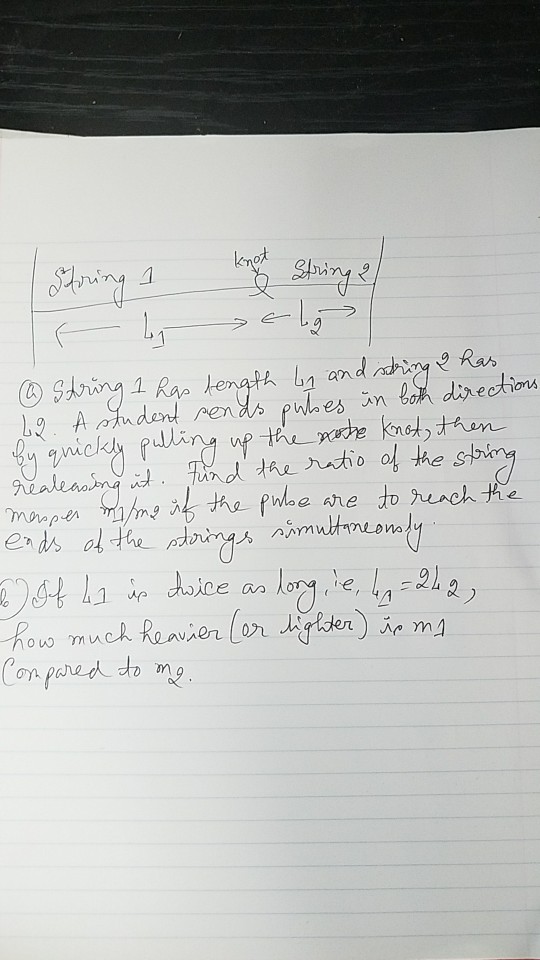 String 1 knot String 2
L1 L2
(a) String 1 has length L1 and string 2 has
L2. A student sends pulses in both directions
by quickly pulling up the knot, then
realeasing it. Find the ratio of the string
masses m1/m2 if the pulse are to reach the
ends of the strings simultaneously.
b) If L1 is twice as long, i.e, L1 = 2L2,
how much heavier (or lighter) is m1
Compared to m2.